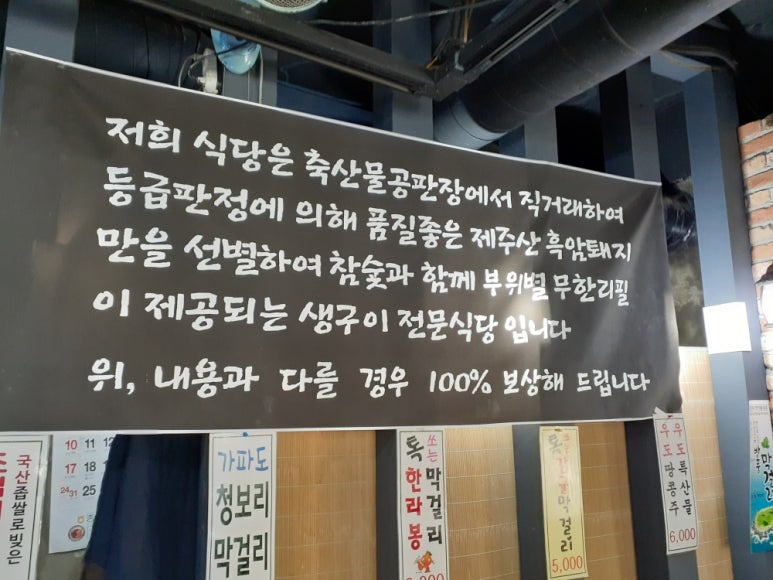 저희 식당은 축산물공판장에서 직거래하여
등급판정에 의해 품질좋은 제주산 흑암퇘지
만을 선별하여 참숯과 함께 부위별 무한리필
이 제공되는 생구이 전문식당 입니다
위, 내용과 다를 경우 100% 보상해 드립니다
국산좁쌀로빚은
10 11
17 18
24/31 25
가파도
청보리
막걸리
톡 쏘는
한라봉
막걸리
막걸리
5,000
우도 특산물
우도땅콩주
6,000